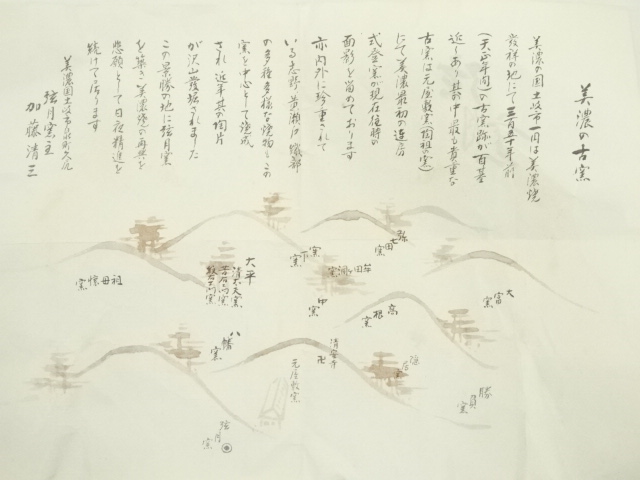 美濃の古窯
美濃の国土岐市一円は美濃焼
発祥の地にて三百五十年前
(天正年間)の古窯跡が百基
近くあり其の中最も貴重な
古窯は元屋敷窯(陶祖の窯)
にて美濃最初の連房
式登窯が現在往時の
面影を留めております
亦内外に珍重されて
いる志野 黄瀬戸 織部
の多種多様な焼物もこの
窯を中心として焼成
され 近年其の陶片
が沢山発掘されました
この景勝の地に弦月窯
を築き 美濃焼の再興を
悲願として日夜精進を
続けております
美濃国土岐市泉町久尻
弦月窯主
加藤清三
弥七田窯
窯下窯
中窯
大平
清太夫窯
祖母懐窯
大富窯
高根窯
八幡窯
清安寺
卍
隠居窯
元屋敷窯
勝負窯
弦月窯